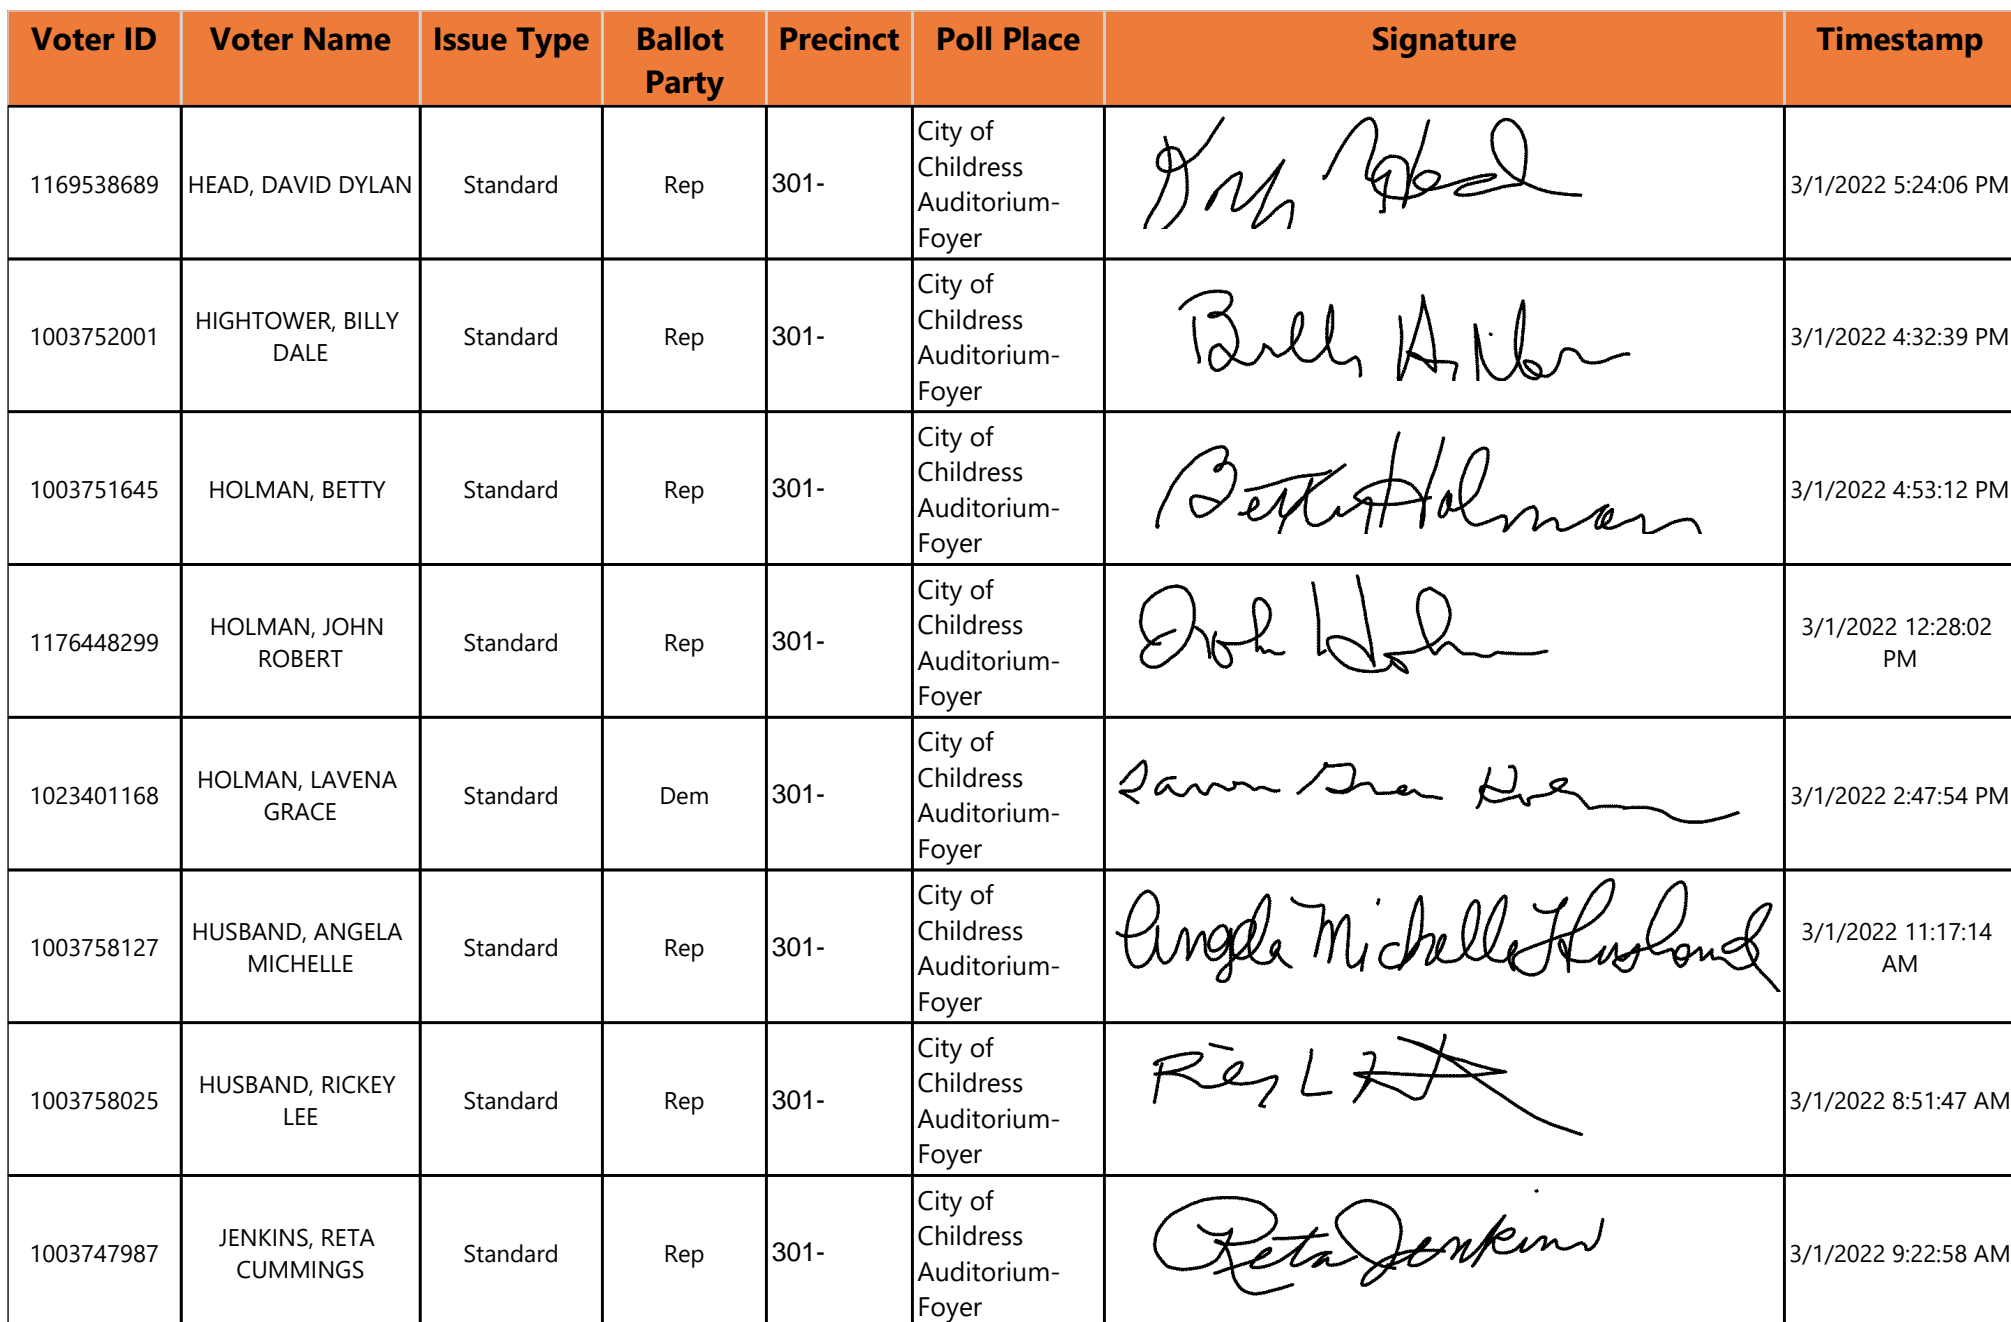 Voter ID Voter Name Issue Type Ballot Party Precinct Poll Place Signature Timestamp
1169538689 HEAD, DAVID DYLAN Standard Rep 301- City of Childress Auditorium-Foyer Head 3/1/2022 5:24:06 PM
1003752001 HIGHTOWER, BILLY DALE Standard Rep 301- City of Childress Auditorium-Foyer Billy 3/1/2022 4:32:39 PM
1003751645 HOLMAN, BETTY Standard Rep 301- City of Childress Auditorium-Foyer Betty Holman 3/1/2022 4:53:12 PM
1176448299 HOLMAN, JOHN ROBERT Standard Rep 301- City of Childress Auditorium-Foyer John 3/1/2022 12:28:02 PM
1023401168 HOLMAN, LAVENA GRACE Standard Dem 301- City of Childress Auditorium-Foyer 3/1/2022 2:47:54 PM
1003758127 HUSBAND, ANGELA MICHELLE Standard Rep 301- City of Childress Auditorium-Foyer Angela Michelle Husband 3/1/2022 11:17:14 AM
1003758025 HUSBAND, RICKEY LEE Standard Rep 301- City of Childress Auditorium-Foyer 3/1/2022 8:51:47 AM
1003747987 JENKINS, RETA CUMMINGS Standard Rep 301- City of Childress Auditorium-Foyer Reta Jenkins 3/1/2022 9:22:58 AM